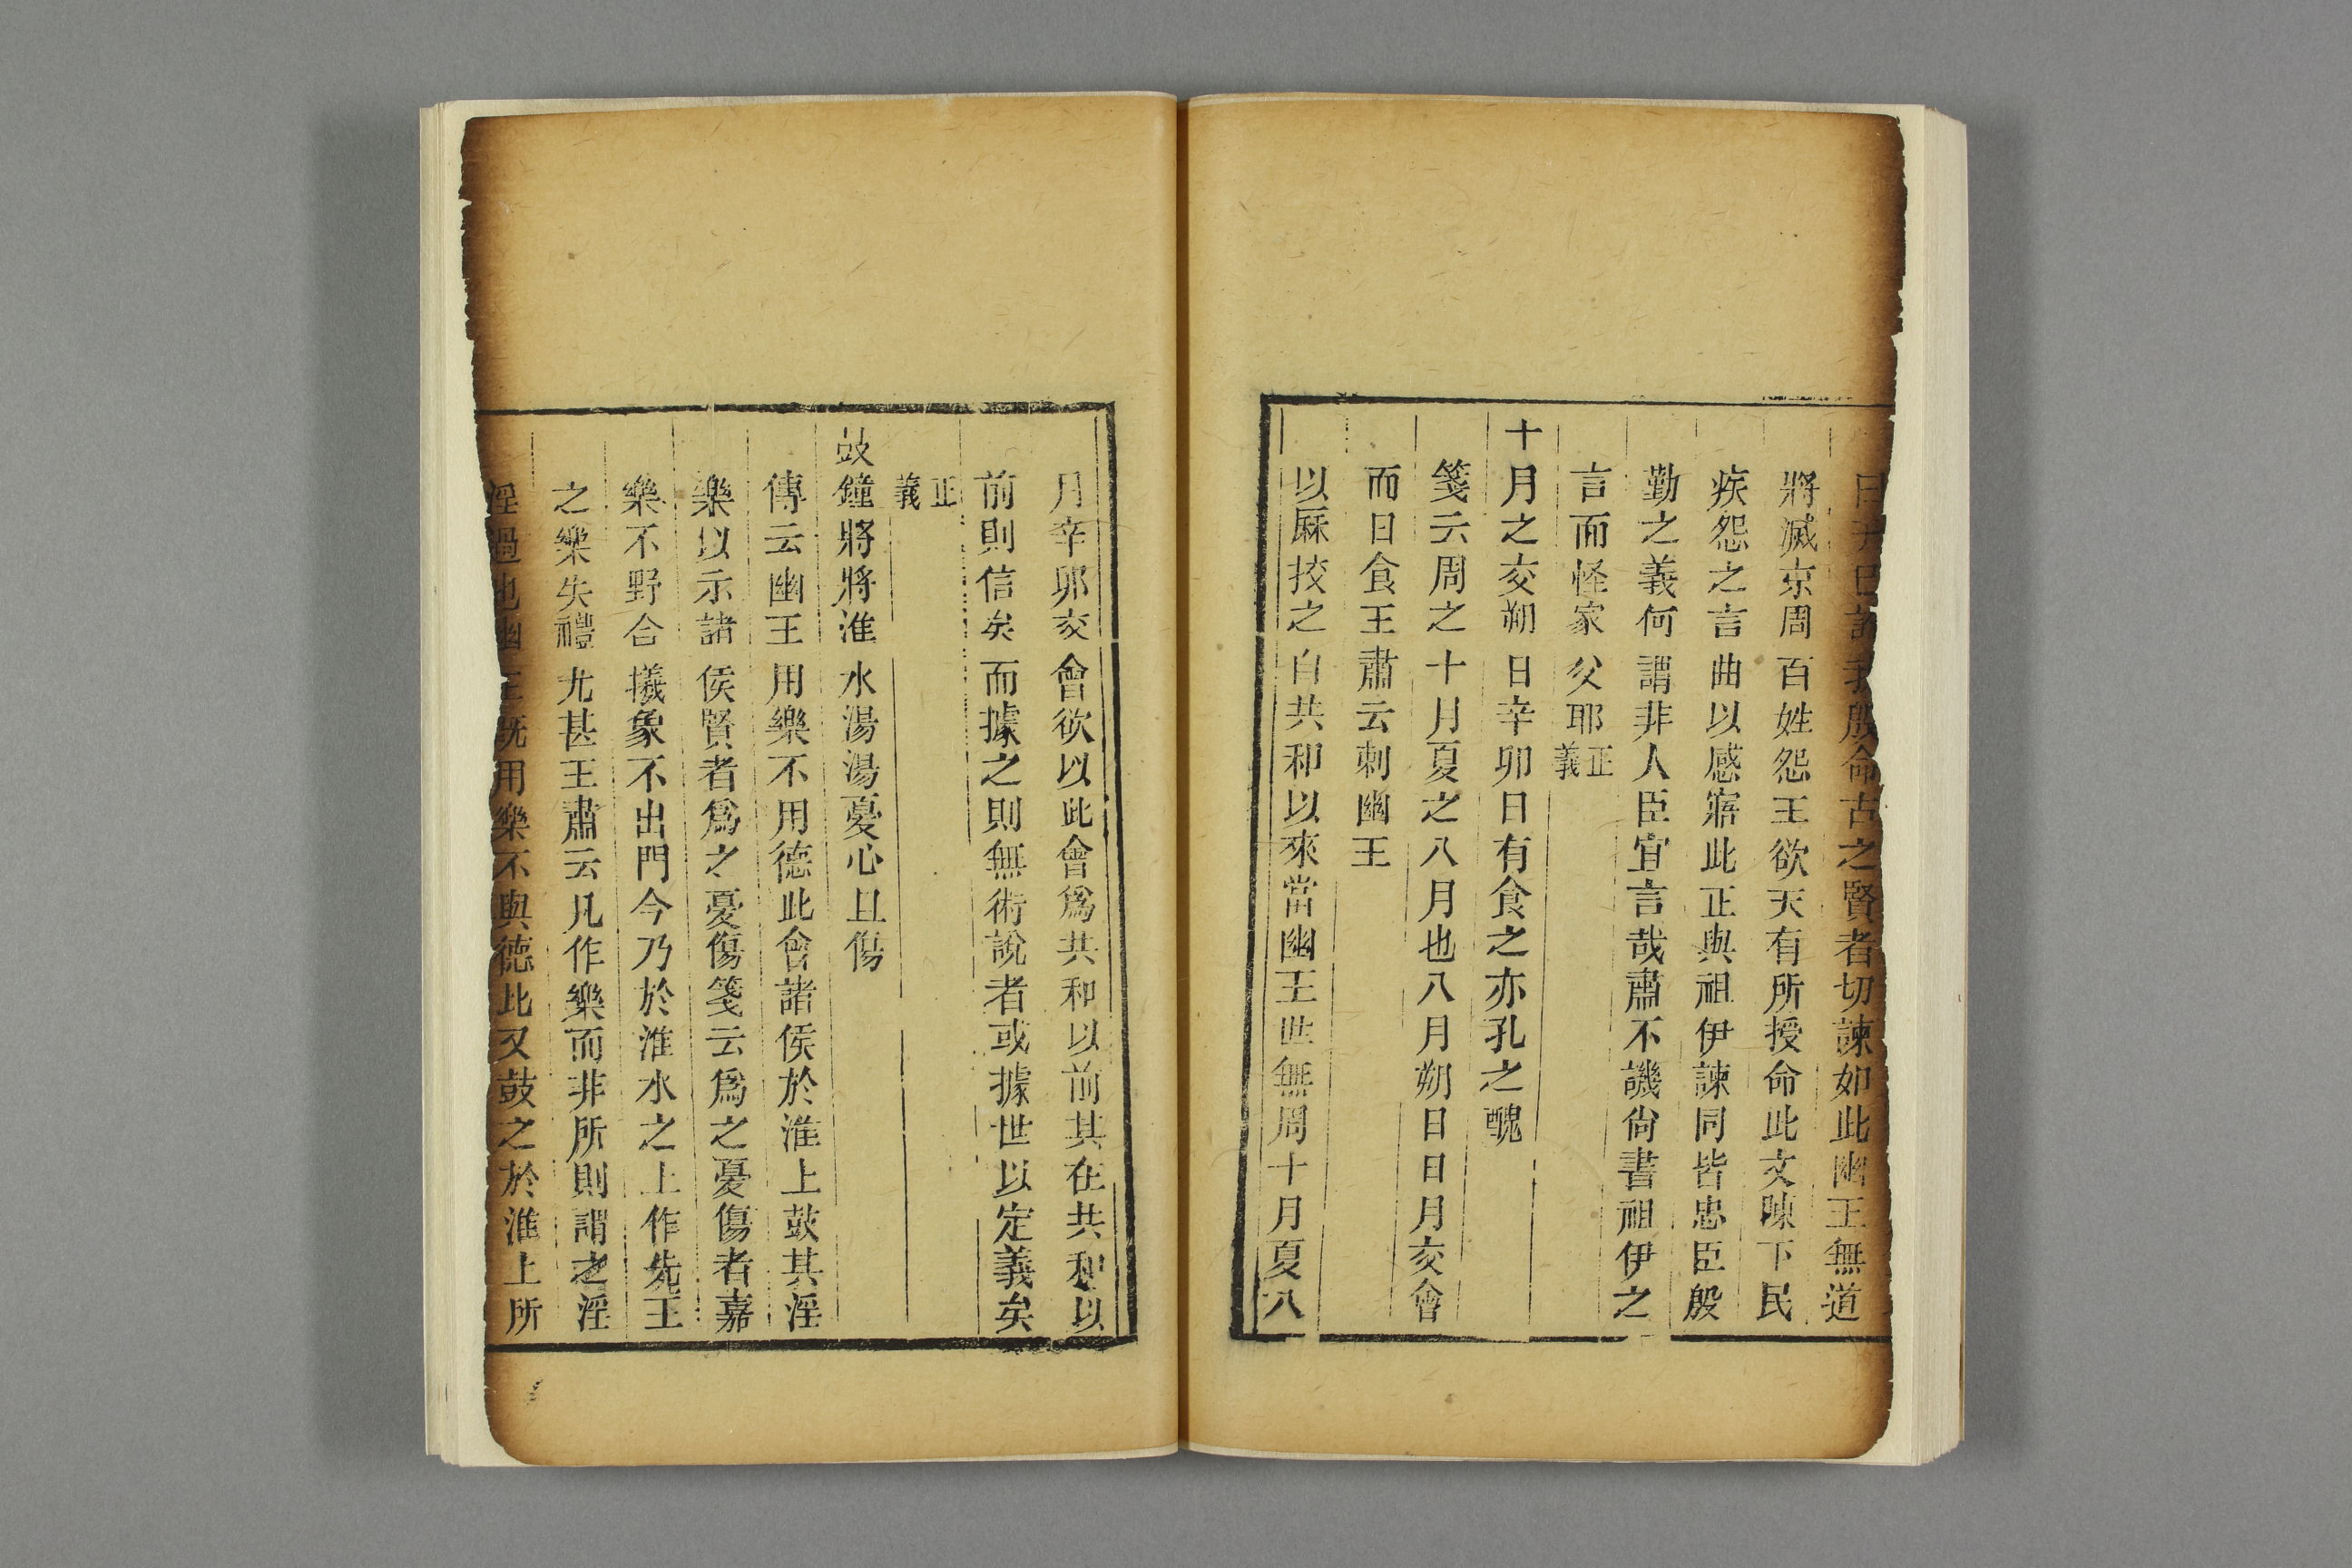 命古之賢者切諫如此幽王無道
將滅京周百姓怨王欲天有所授命此文陳下民
疾怨之言曲以感寤此正與祖伊諫同皆忠臣殷
勤之義何謂非人臣宜言哉肅不譏尚書祖伊之
言而怪家父耶正義
十月之交朔日辛卯日有食之亦孔之醜
箋云周之十月夏之八月也八月朔日日月交會
而日食王肅云刺幽王
以厤挍之自共和以來當幽王世無周十月夏八
月辛卯交會欲以此會爲共和以前其在共和以
前則信矣而據之則無術說者或據世以定義矣
正義
鼓鐘將將淮水湯湯憂心且傷
傳云幽王用樂不用德此會諸侯於淮上鼓其淫
樂以示諸侯賢者爲之憂傷箋云爲之憂傷者嘉
樂不野合犧象不出門今乃於淮水之上作先王
之樂失禮尤甚王肅云凡作樂而非所則謂之淫
淫過也幽王既用樂不與德比又鼓之於淮上所